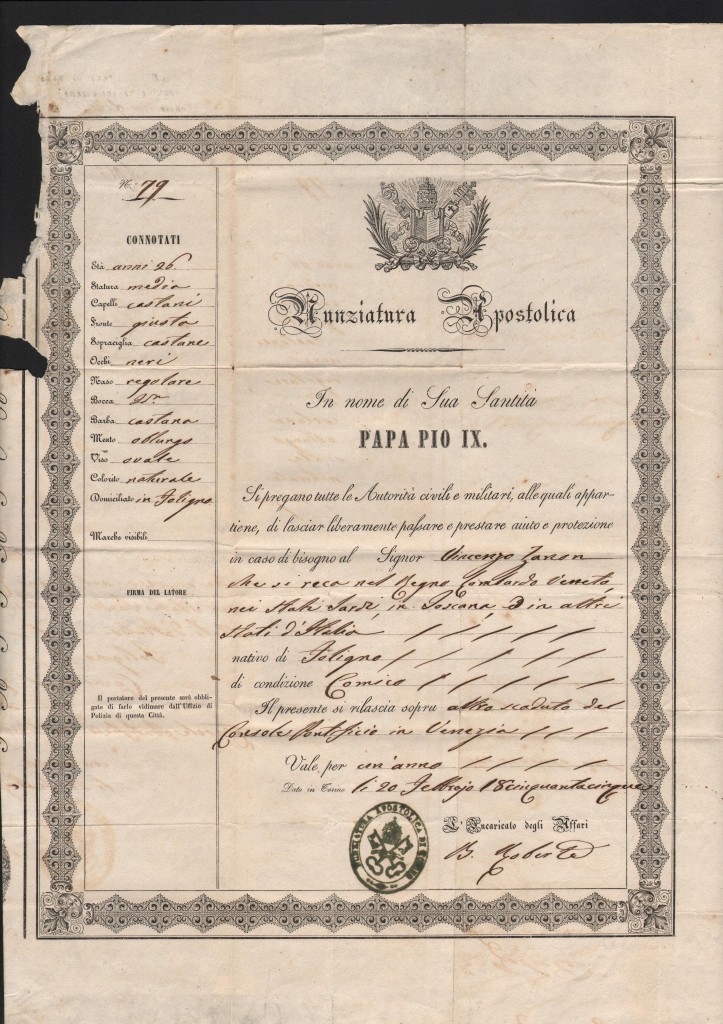 N.° 79
CONNOTATI
Età anni 26
Statura media
Capelli castani
Fronte giusta
Sopraciglia castane
Occhi neri
Naso regolare
Bocca
Barba castana
Mento oblungo
Viso ovale
Colorito naturale
Domiciliato in Foligno
Marche visibili
FIRMA DEL LATORE
Il portatore del presente sarà obbli-
gato di farlo vidimare dall'Uffizio di
Polizia di questa Città.
Nunziatura Apostolica
In nome di Sua Santità
PAPA PIO IX.
Si pregano tutte le Autorità civili e militari, alle quali appar-
tiene, di lasciar liberamente passare e prestare aiuto e protezione
in caso di bisogno al Signor Vincenzo Zanon
che si reca nel Regno Lombardo Veneto,
nei Stati Sardi, in Toscana ed in altri
Stati d'Italia
nativo di Foligno
di condizione Comico
Il presente si rilascia sopra altro scaduto del
Console Pontificio in Venezia
Vale per un'anno
Dato in Torino li 20 Febbrajo 18cinquantacinque
L'Incaricato degli Affari
B. Roberti
NUNZIATURA APOSTOLICA DI TORINO